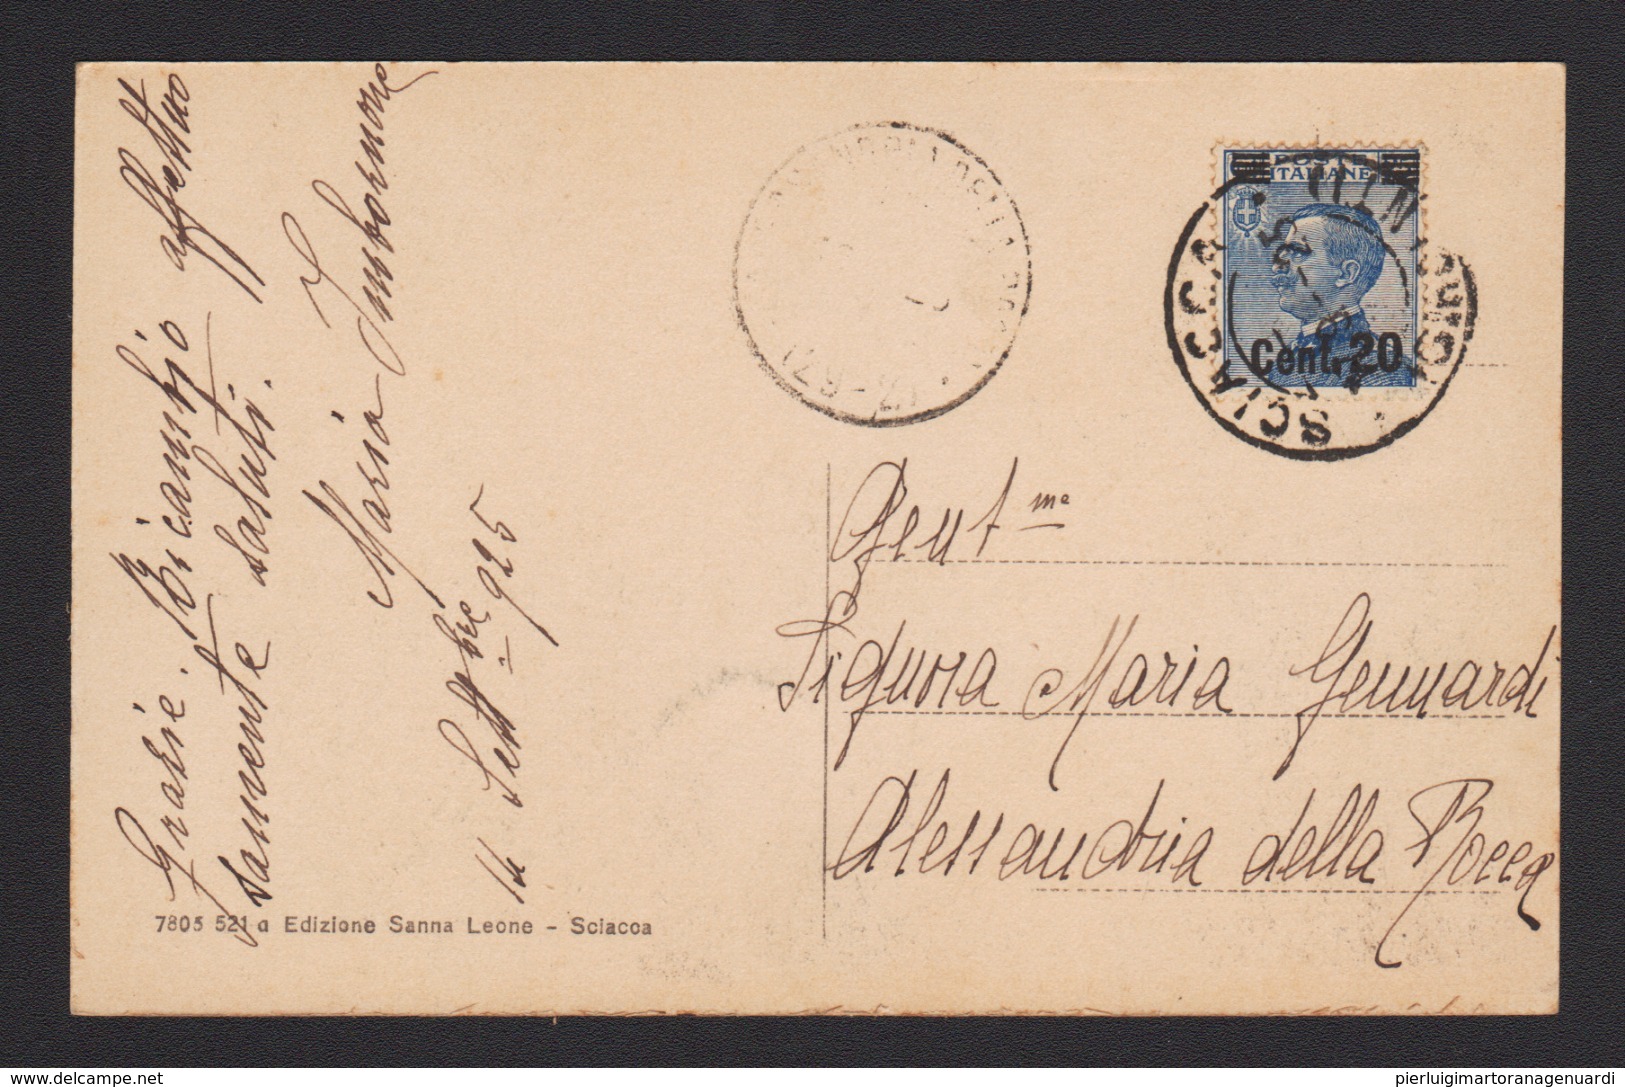 Grazie. Ricambio affettuo
samente saluti.
Maria Imbornone
14 Sett.bre 925
7805 521 a Edizione Sanna Leone - Sciacca
POSTE
ITALIANE
Cent. 20
SCIACCA
(29-27)
Gent.me
Signora Maria Gennardi
Alessandria della Rocca
delcampe.net
pierluigimartoranagenuardi